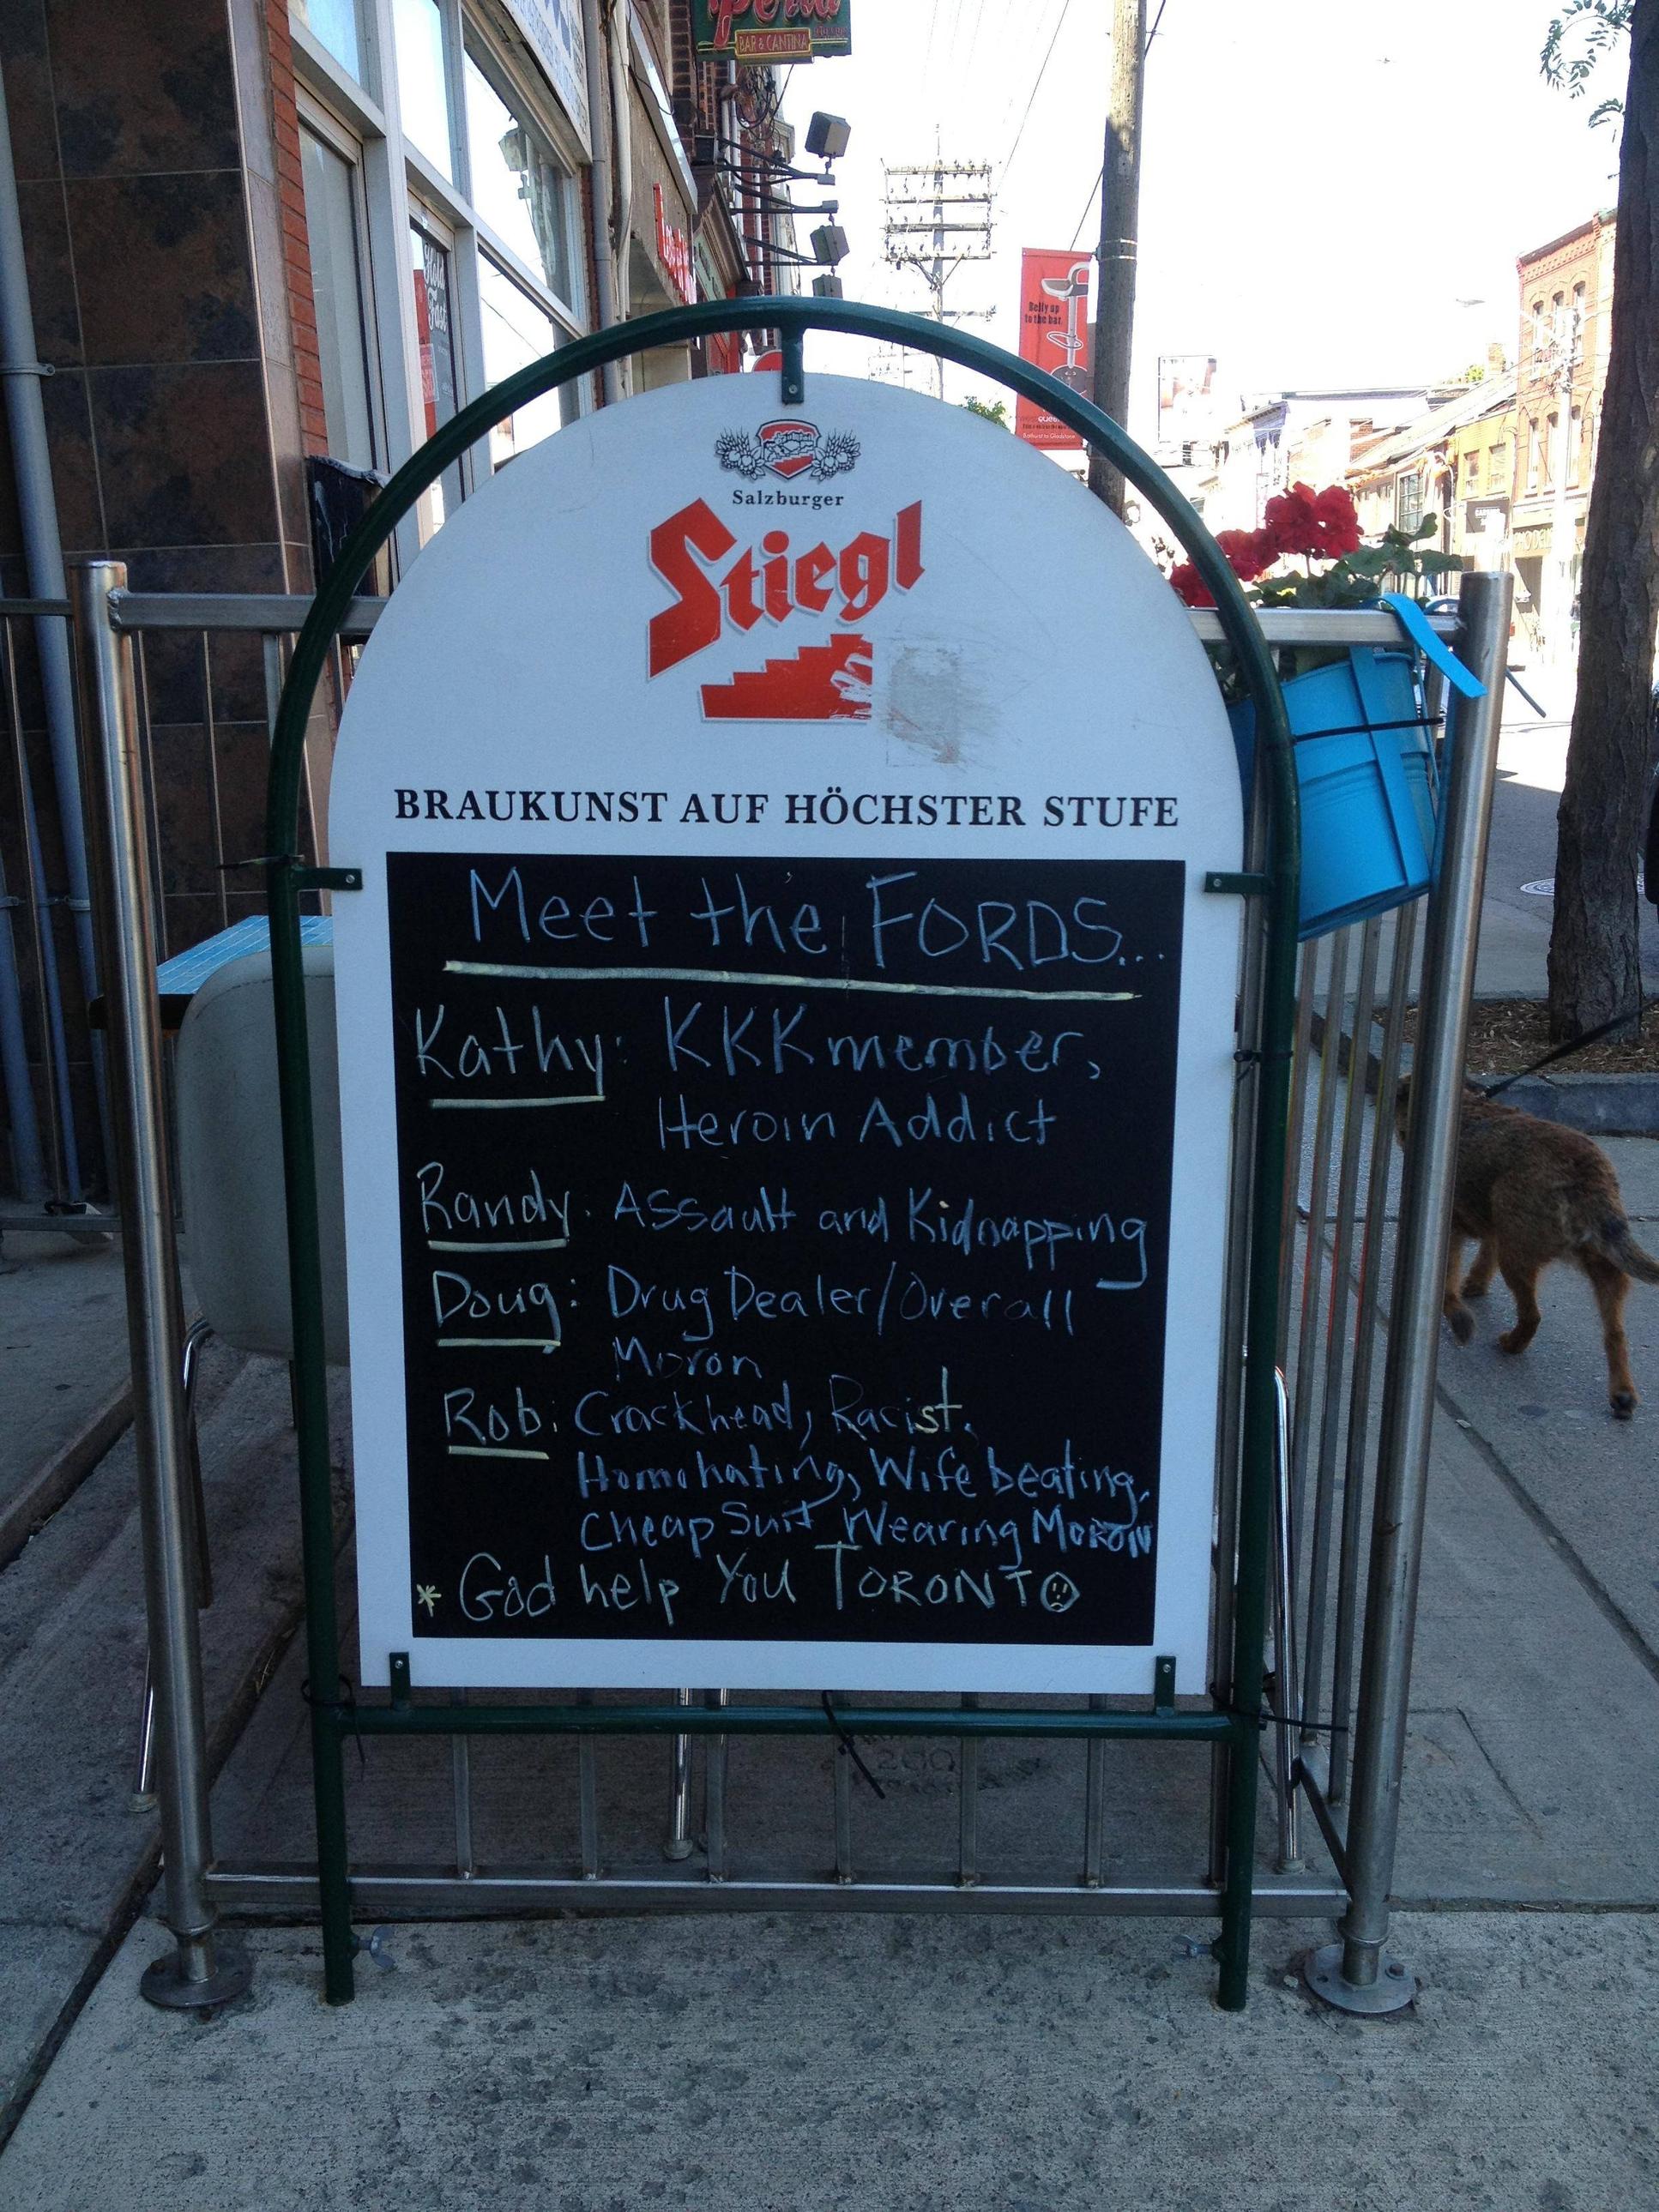 Peña
BAR & CANTINA
Hold
Fast
Belly up
to the bar
Bathurst to Gladstone
Salzburger
Stiegl
BRAUKUNST AUF HÖCHSTER STUFE
Meet the FORDS...
Kathy: KKK member,
Heroin Addict
Randy: Assault and Kidnapping
Doug: Drug Dealer/Overall
Moron
Rob: Crackhead, Racist,
Homohating, Wife beating,
Cheap Suit Wearing MORON
* God help You TORONTO
200